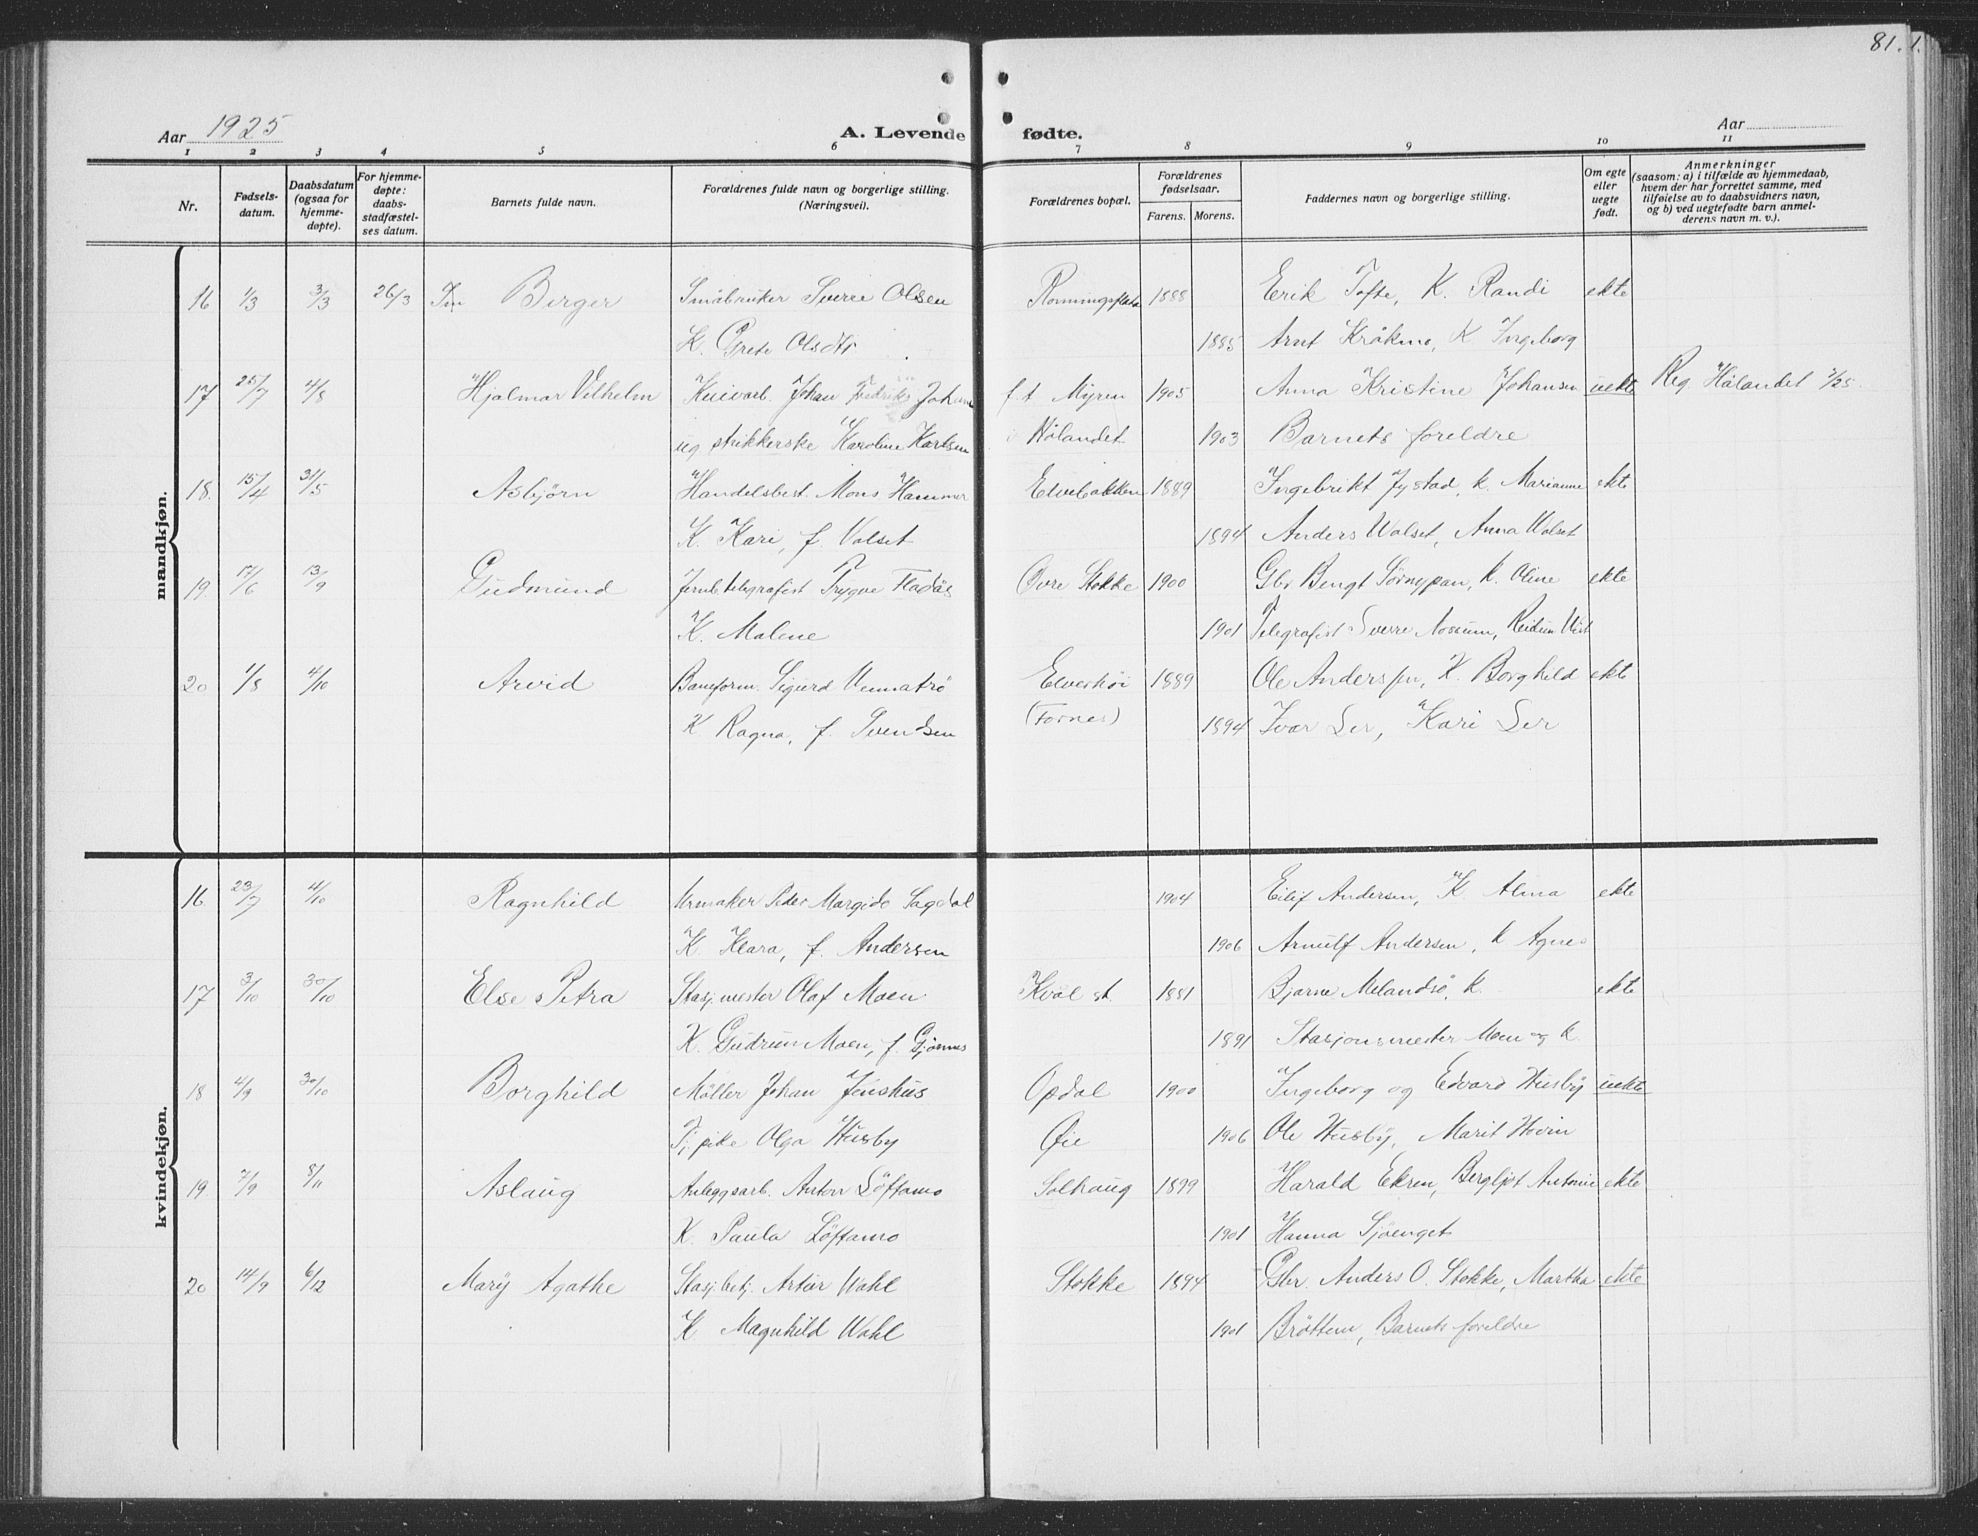 81. 1.
Aar 1925 A. Levende fødte. Aar
1 2 3 4 5 6 7 8 9 10 11
Nr.
Fødsels-
datum.
Daabsdatum
(ogsaa for
hjemme-
døpte).
For hjemme-
døpte:
daabs-
stadfæstel-
ses datum.
Barnets fulde navn.
Forældrenes fulde navn og borgerlige stilling.
(Næringsvei).
Forældrenes bopæl.
Forældrenes
fødselsaar.
Farens. Morens.
Faddernes navn og borgerlige stilling.
Om egte
eller
uegte
født.
Anmerkninger
(saasom: a) i tilfælde av hjemmedaab,
hvem der har forrettet samme, med
tilføielse av to daabsvidners navn,
og b) ved uegtefødte barn anmel-
derens navn m. v.).
mandkjøn.
16 1/3 3/3 26/3 Birger Småbruker Sverre Olsen 1888 Erik Tofte, K. Randi ekte
K. Grete Olsdtr 1885 Arnt Kråkmo, K Ingeborg
17 25/7 4/8 Hjalmar Vilhelm Johan Fredrik f.t Myren 1905 Anna Kristine Johansen uekte Reg Hålandet
ug strikkerske Karoline Karlsen i Hölandet 1903 Barnets foreldre
18. 15/4 31/5 Asbjørn Handelsbest. Mons Hammer Elvebakken 1889 Ingebrikt Jystad, k. Marianne ekte
K. Kari, f. Valset 1894 Anders Valset, Anna Valset
19 17/6 13/9 Gudmund Jernb.telegrafist Trygve Fladås Øvre Stokke 1900 Gbr Bengt Sørnypan, k. Oline ekte
K. Malene 1901 Telegrafist Sverre Nossum, Reidun
20 1/8 4/10 Arvid Baneform. Sigurd Vennatrø Elverhöi 1889 Ole Andersen, K. Borghild ekte
K Ragna, f. Svendsen (Fornes) 1894 Ivar Ler, Kari Ler
kvindekjøn.
16 23/7 4/10 Ragnhild Urmaker Peder Margido Sagdal 1904 Eilif Andersen, K. Alma ekte
K. Klara, f. Andersen 1906 Arnulf Andersen, k Agnes
17 3/10 30/10 Else Petra Stasj.mester Olaf Moen Kvål st. 1881 Bjarne Melandsö, k. ekte
K. Gudrun Moen, f. Gjørnes 1891 Stasjonsmester Moen og k.
18 4/9 30/10 Borghild Möller Johan Jenshus Opdal 1900 Ingeborg og Edvard Husby uekte
Tj. pike Olga Husby Øie 1906 Ole Husby, Marit Hovin
19 7/9 8/11 Aslaug Anleggsarb. Anton Löftamo Solhaug 1899 Harald Ekren, Bergljot Antonie ekte
K. Paula Löftamo 1901 Hanna Sjöenget
20 14/9 6/12 Mary Agathe Stasj.betj. Artur Wahl Stokke 1894 Gbr. Anders O. Stokke, Martha ekte
K Magnhild Wahl 1901 Bröttem, Barnets foreldre